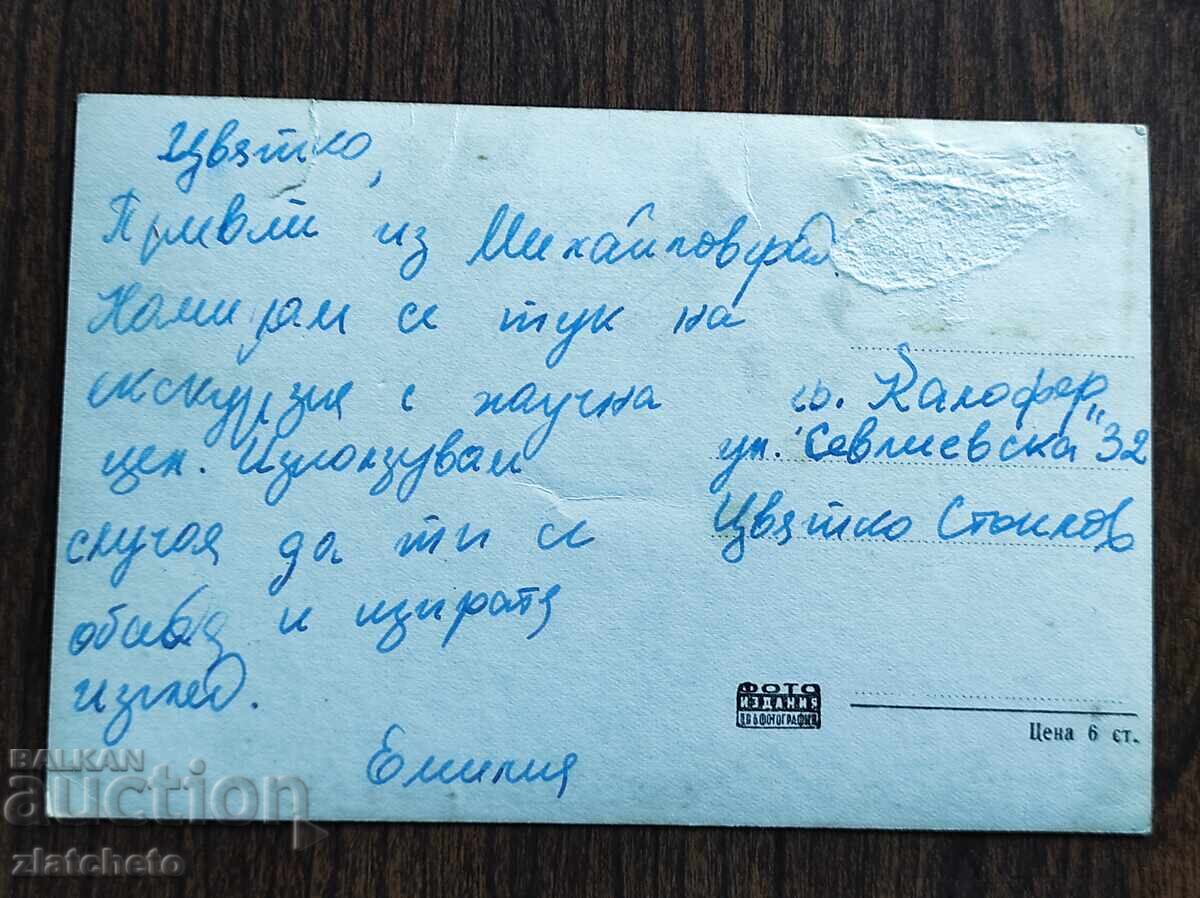 Цвятко,
Привет из Михайловград.
Намирам се тук на
екскурзия с научна
цел. Използувам
случая да ти се
обадя и изпратя
изглед.
Емилия
гр. Калофер
ул. "Севлиевска" 32
Цвятко Стоилов
ФОТО
ИЗДАНИЯ
Цена 6 ст.
BALKAN
auction
zlatcheto